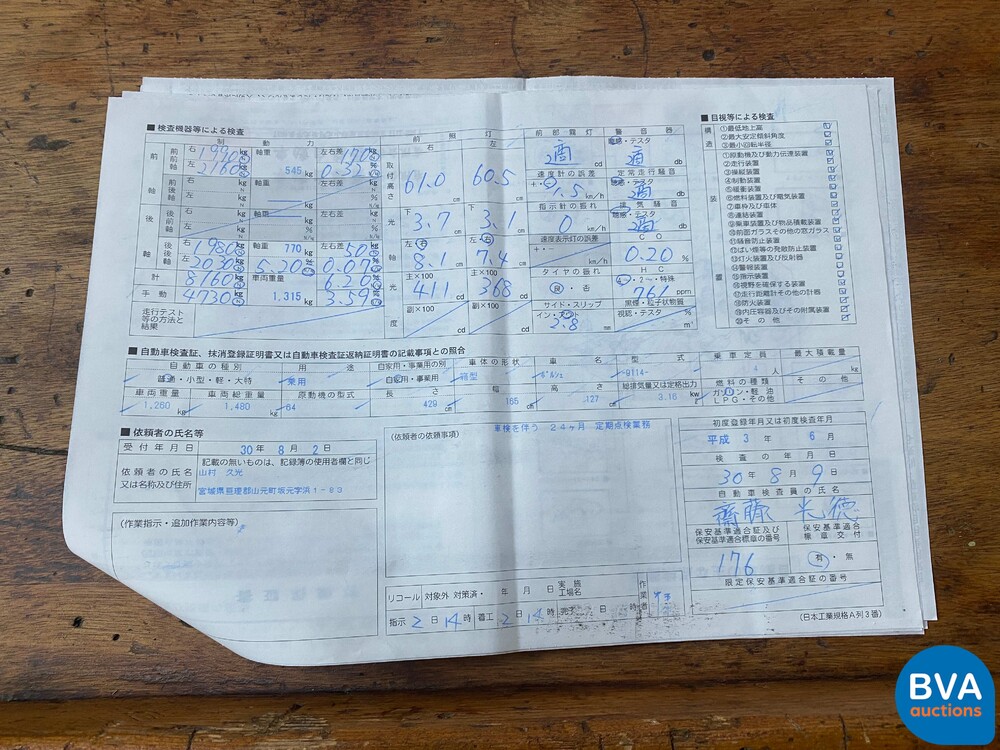 ■検査機器等による検査
制 動 力
前 照 灯
前部霧灯 警音器
右 1990 軸重 左右差 170
左 2160 545 0.32
右 左
聴感・テスタ
適 適 db
取付高さ 61.0 60.5 cm
速度計の誤差 定常走行騒音
1.5 km/h 適 db
指示計の振れ 排気騒音
聴感・テスタ
0 km/h 適 db
光 下 3.7 下 3.1 cm
右 1980 軸重 770 左右差 50
左 2030 5.20 0.07
左右 8.1 左右 7.4 cm
速度表示灯の誤差 CO
0.20 %
計 8160 車両重量 6.20
手動 4730 1,315 3.59
主×100 主×100
光度 411 368 cd
副×100 副×100
タイヤの振れ HC
良・否 4・2・特殊
761 ppm
サイド・スリップ 黒煙・粒子状物質
イン・アウト 視認・テスタ
2.8 m
走行テスト
等の方法と
結果
■目視等による検査
構造
①最低地上高
②最大安定傾斜角度
③最小回転半径
装置
①原動機及び動力伝達装置
②走行装置
③操縦装置
④制動装置
⑤緩衝装置
⑥燃料装置及び電気装置
⑦車枠及び車体
⑧連結装置
⑨乗車装置及び物品積載装置
⑩前面ガラスその他の窓ガラス
⑪騒音防止装置
⑫ばい煙等の発散防止装置
⑬灯火装置及び反射器
⑭警報装置
⑮指示装置
⑯視野を確保する装置
⑰走行距離計その他の計器
⑱防火装置
⑲内圧容器及びその附属装置
⑳その他
■自動車検査証、抹消登録証明書又は自動車検査証返納証明書の記載事項との照合
自動車の種別 用途 自家用・事業用の別 車体の形状 車名 型式 乗車定員 最大積載量
普通・小型・軽・大特 乗用 自家用・事業用 箱型 ポルシェ -9114- 4 人 kg
車両重量 車両総重量 原動機の型式 長さ 幅 高さ 総排気量又は定格出力 燃料の種類 その他
1,260 kg 1,480 kg 64 429 cm 165 cm 127 cm 3.16 kw ガソリン・軽油 LPG・その他
■依頼者の氏名等
受付年月日 30年 8月 2日
依頼者の氏名
又は名称及び住所
記載の無いものは、記録簿の使用者欄と同じ
山村 久光
宮城県亘理郡山元町坂元字浜1-83
(作業指示・追加作業内容等)
(依頼者の依頼事項) 車検を伴う 24ヶ月 定期点検業務
リコール 対象外 対策済・ 年 月 日 実施工場名
指示 2日 14時 着工 2日 14時 完了 日 時
作業者
初度登録年月又は初度検査年月
平成 3 年 6 月
検査の年月日
30年 8月 9日
自動車検査員の氏名
齋藤 光徳
保安基準適合証及び 保安基準適合
保安基準適合標章の番号 標章交付
176 有・無
限定保安基準適合証の番号
(日本工業規格A列3番)
BVA
auctions